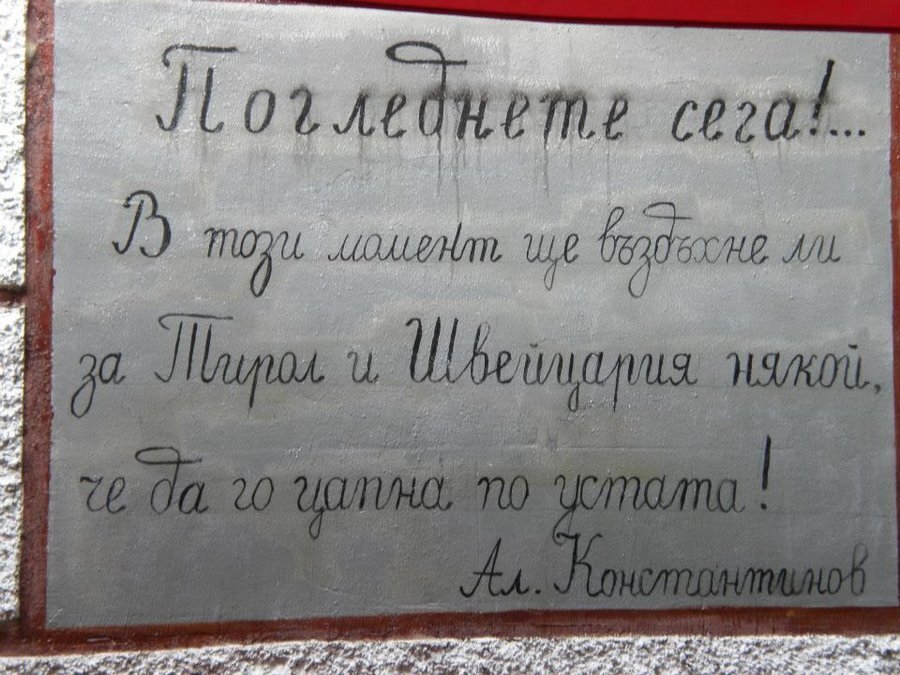 Погледнете сега!...
В този момент ще въздъхне ли
за Тирол и Швейцария някой,
че да го цапна по устата!
Ал. Константинов